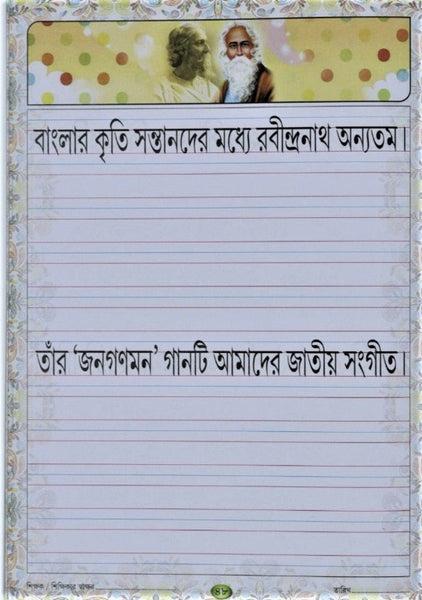 বাংলার কৃতি সন্তানদের মধ্যে রবীন্দ্রনাথ অন্যতম।
তাঁর ‘জনগণমন’ গানটি আমাদের জাতীয় সংগীত।
শিক্ষক / শিক্ষিকার স্বাক্ষর
৪৮
তারিখ